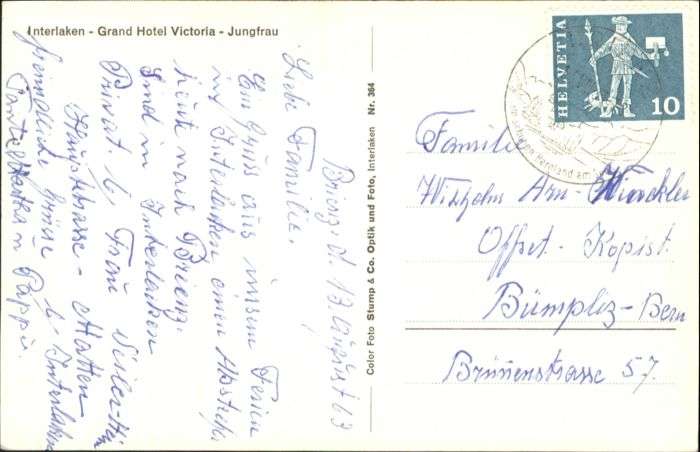 Interlaken - Grand Hotel Victoria - Jungfrau
Brienz, d. 13 August 63
Liebe Familie.
Ein Gruss aus unsern Ferien
in Interlaken einen Abstecher
heute nach Brienz.
Sind in Interlaken
Privat b, Frau
Hauptstrasse - Matten
b. Interlaken
Freundliche Grüsse
Tante Martha u Pappi.
Color Foto Stump & Co. Optik und Foto, Interlaken Nr. 364
HELVETIA
10
Familie
Wilhelm Arn-Winkler
Offset-Kopist
Bümpliz-Bern
Brünnenstrasse 57.